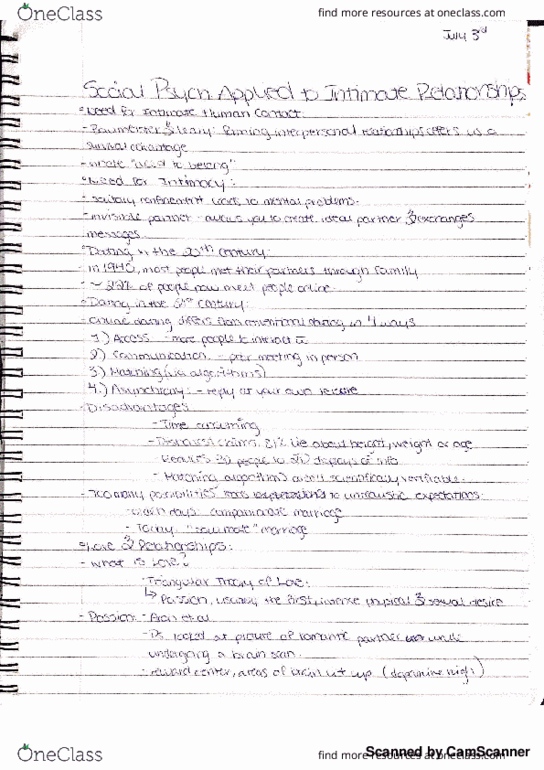 OneClass
find more resources at oneclass.com
July 3rd
Social Psych Applied to Intimate Relationships
Need for Intimate Human Contact
- Baumeister & Leary: forming interpersonal relationships offers us a
survival advantage
- innate "need to belong"
Need for Intimacy:
- solitary confinement leads to mental problems.
- invisible partner - allows you to create ideal partner & exchanges
messages
Dating in the 20th century:
- in 1940, most people met their partners through family
- ~ 22% of people now meet people online
Dating in the 21st century:
- online dating differs from conventional dating in 4 ways
1.) Access - more people to interact
2.) Communication - prior meeting in person
3.) Matching (via algorithms)
4.) Asynchrony: - reply at your own leisure
- Disadvantages
- Time consuming
- 81% lie about height, weight or age
- Reduces 3D people to 2D displays of info
- Matching algorithms aren't scientifically verifiable
- Too many possibilities to unrealistic expectations
days: companionate marriage
- Today: "soul mate" marriage
Love & Relationships:
- What is Love?
- Triangular Theory of Love:
↳ Passion, usually the first, intense physical & sexual desire
- Passion: - Aron et al
- Ps looked at picture of romantic partner while
undergoing a brain scan.
- reward center, areas of brain lit up (dopamine high)
OneClass
find more resources at oneclass.com
Scanned by CamScanner